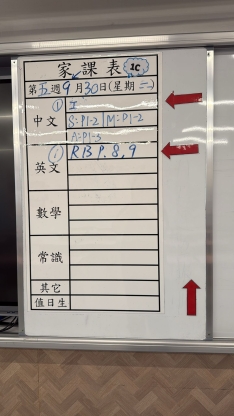 家課表 1C
第五週9月30日(星期二)
中文 ① I.
S: P1-2 M: P1-2
A: P1-3
英文 ① RB P. 8, 9
數學
常識
其它
值日生